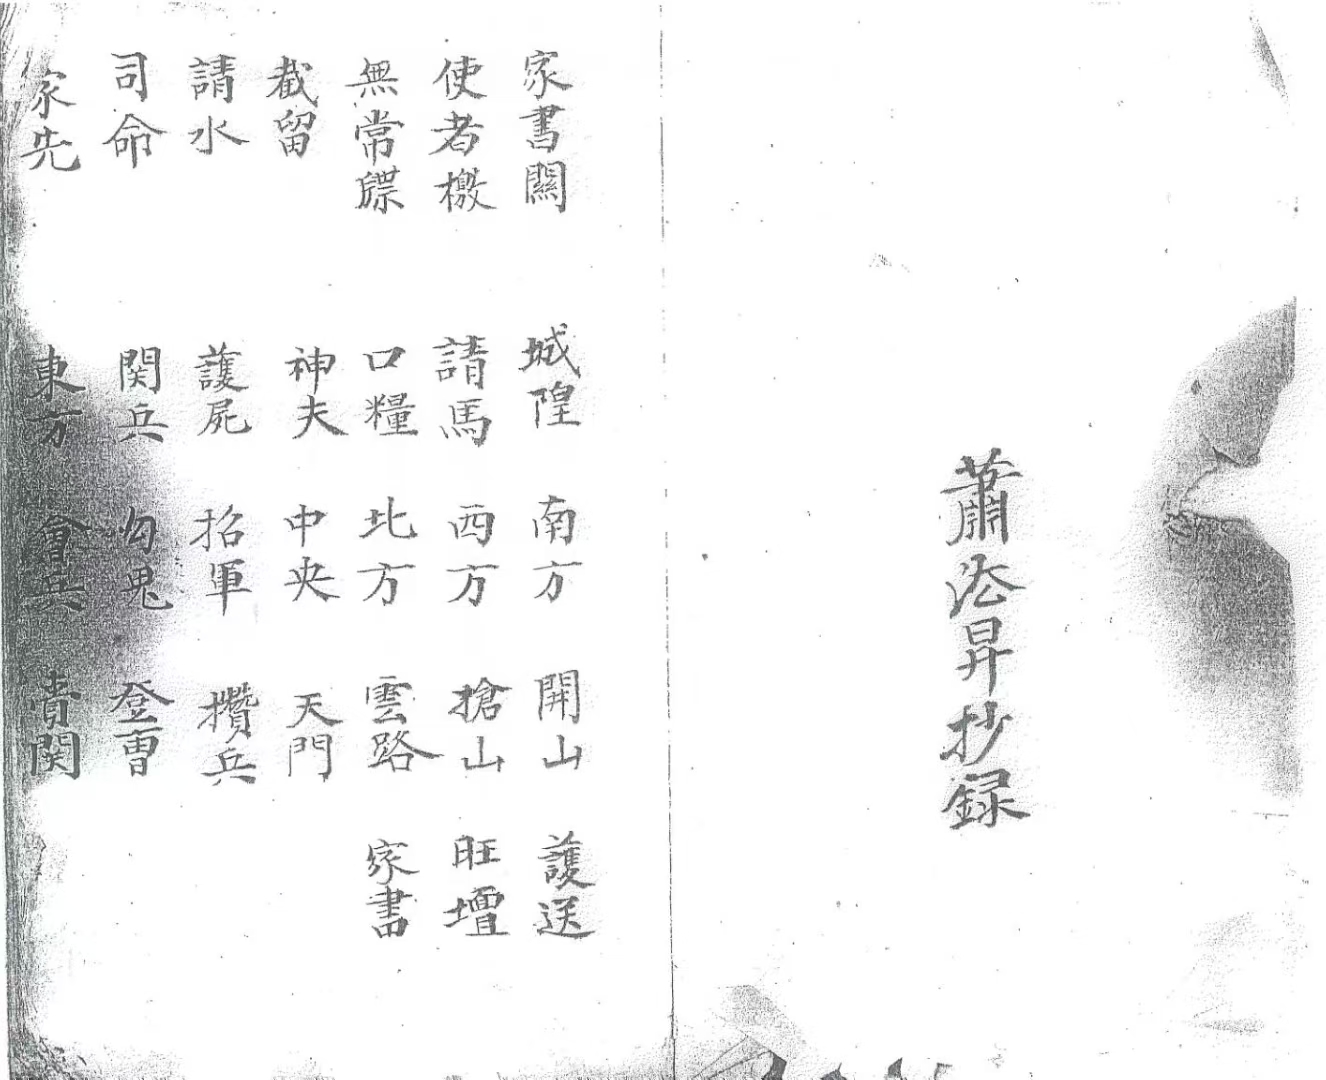 蕭法昇抄録
家書關 城隍 南方 開山 護送
使者檄 請馬 西方 搶山 旺壇
無常牒 口糧 北方 雲路 家書
截留 神夫 中央 天門
請水 護屍 招軍 攢兵
司命 関兵 勾鬼 登曹
家先 東方 會兵 関